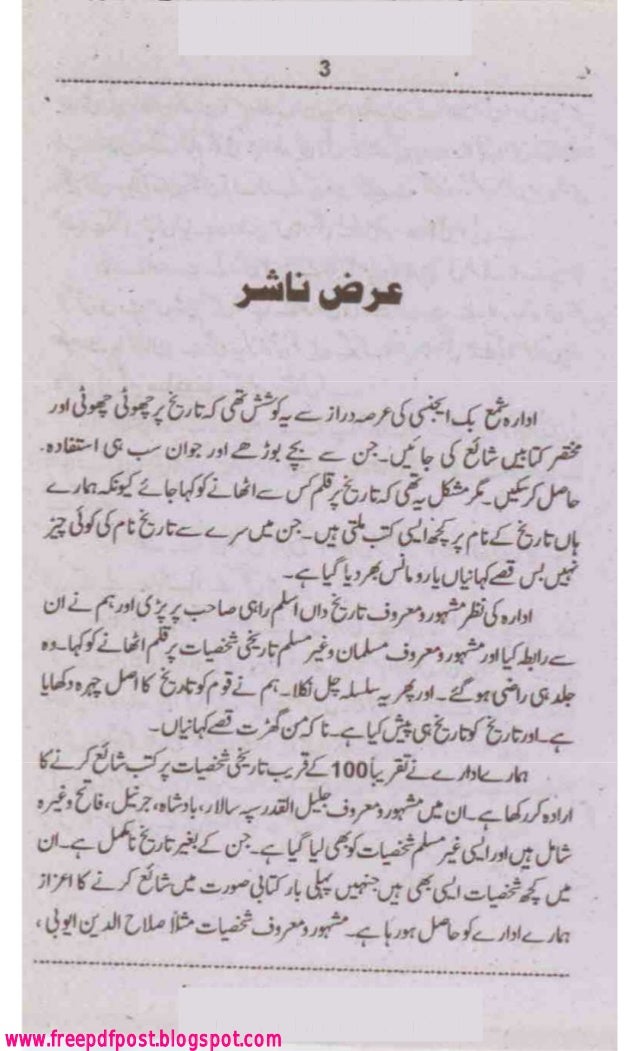 3
عرض ناشر
ادارہ شمع بک ایجنسی کی عرصہ دراز سے یہ کوشش تھی کہ تاریخ پر چھوٹی چھوٹی اور
مختصر کتابیں شائع کی جائیں۔ جن سے بچے بوڑھے اور جوان سب ہی استفادہ۔
حاصل کر سکیں۔ مگر مشکل یہ تھی کہ تاریخ پر قلم کس سے اٹھانے کو کہا جائے کیونکہ ہمارے
ہاں تاریخ کے نام پر کچھ ایسی کتب ملتی ہیں۔ جن میں سرے سے تاریخ نام کی کوئی چیز
نہیں بس قصے کہانیاں یا رومانس بھر دیا گیا ہے۔
ادارہ کی نظر مشہور و معروف تاریخ داں اسلم راہی صاحب پر پڑی اور ہم نے ان
سے رابطہ کیا اور مشہور و معروف مسلمان و غیر مسلم تاریخی شخصیات پر قلم اٹھانے کو کہا۔ وہ
جلد ہی راضی ہو گئے۔ اور پھر یہ سلسلہ چل نکلا۔ ہم نے قوم کو تاریخ کا اصل چہرہ دکھایا
ہے۔ اور تاریخ کو تاریخ ہی پیش کیا ہے۔ نا کہ من گھڑت قصے کہانیاں۔
ہمارے ادارے نے تقریباً 100 کے قریب تاریخی شخصیات پر کتب شائع کرنے کا
ارادہ کر رکھا ہے۔ ان میں مشہور و معروف جلیل القدر سپہ سالار، بادشاہ، جرنیل، فاتح وغیرہ
شامل ہیں اور ایسی غیر مسلم شخصیات کو بھی لیا گیا ہے۔ جن کے بغیر تاریخ نامکمل ہے۔ ان
میں کچھ شخصیات ایسی بھی ہیں جنہیں پہلی بار کتابی صورت میں شائع کرنے کا اعزاز
ہمارے ادارے کو حاصل ہو رہا ہے۔ مشہور و معروف شخصیات مثلاً صلاح الدین ایوبی،
www.freepdfpost.blogspot.com